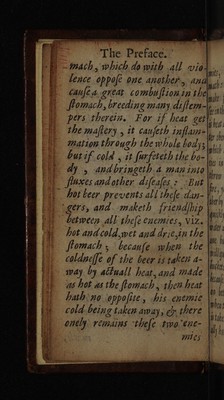 The Preface.
mach, which do with all vio-
lence oppose one another, and
cause a great combustion in the
stomach, breeding many distem-
pers therein. For if heat get
the mastery, it causeth inflam-
mation through the whole body;
but if cold, it surfeteth the bo-
dy, and bringeth a man into
fluxes and other diseases: But
hot beer prevents all these dan-
gers, and maketh friendship
between all these enemies, viz.
hot and cold, wet and drie, in the
stomach; because when the
coldnesse of the beer is taken a-
way by actuall heat, and made
as hot as the stomach, then heat
hath no opposite, his enemie
cold being taken away, & there
onely remains these two ene-
mies